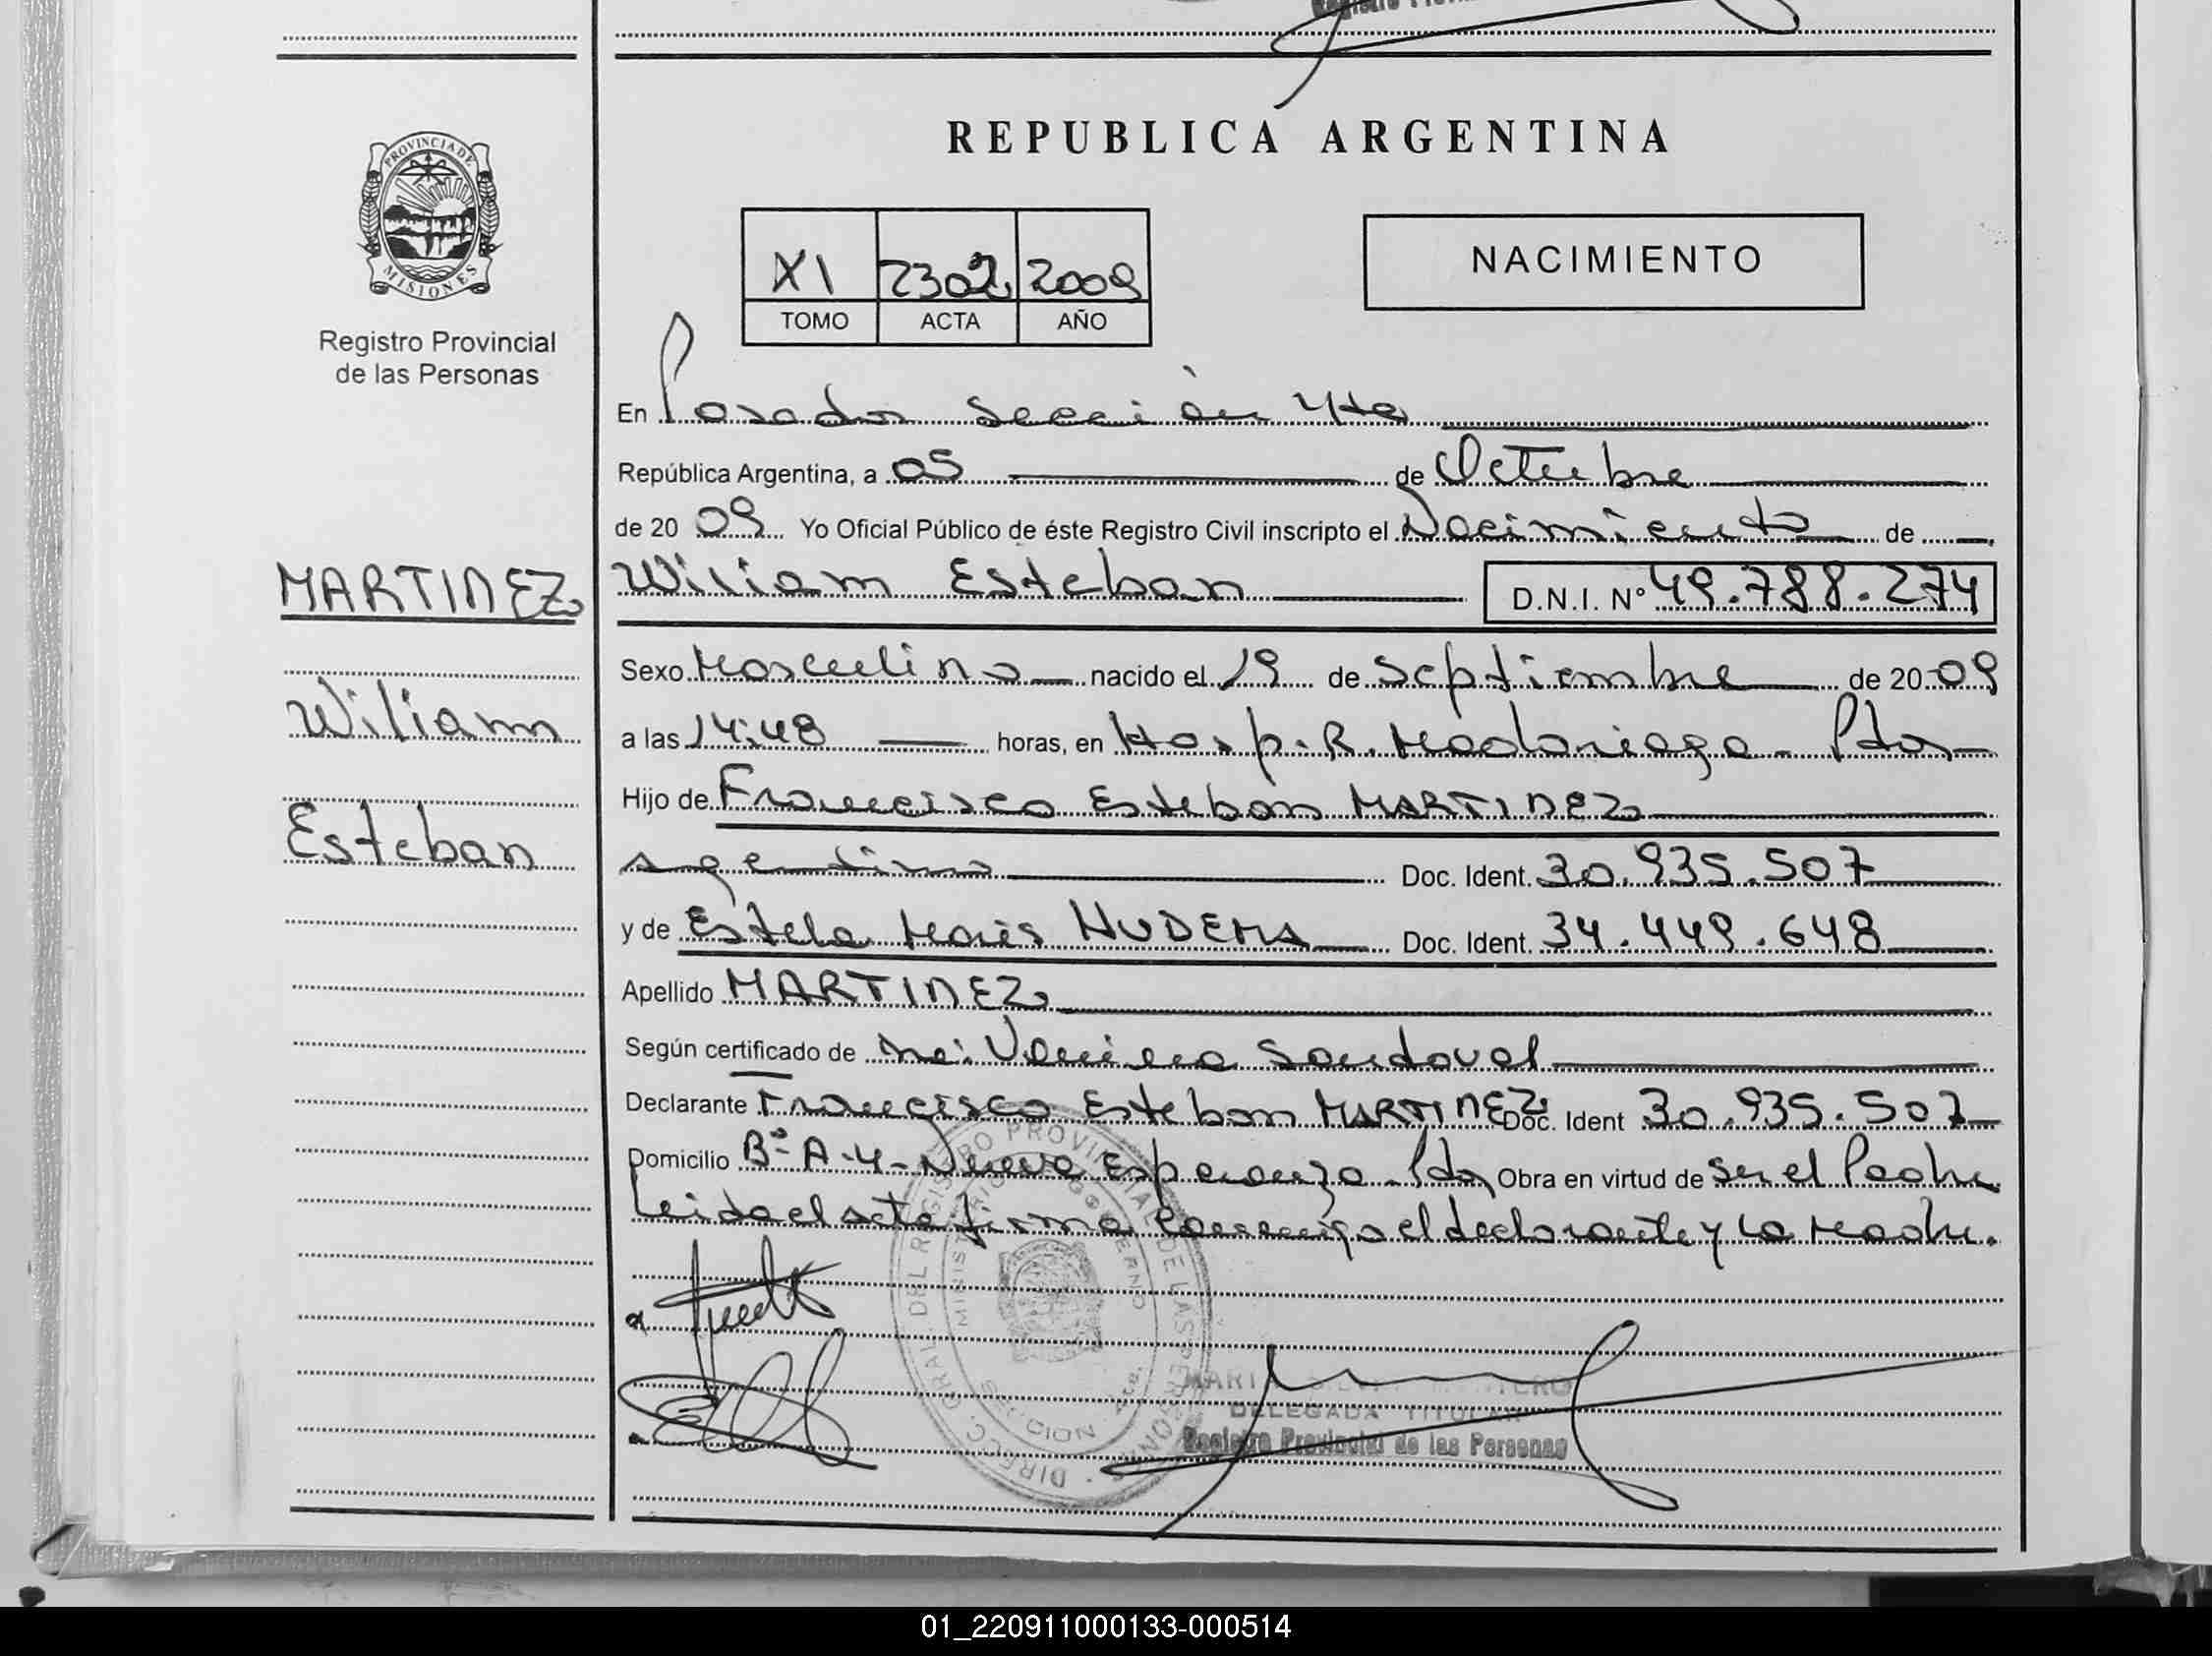 REPUBLICA ARGENTINA
PROVINCIA DE
MISIONES
Registro Provincial
de las Personas
XI 2302 2009
TOMO ACTA AÑO
NACIMIENTO
En Posadas Sección 4ta
República Argentina, a 05 de Octubre
de 20 09 Yo Oficial Público de éste Registro Civil inscripto el Nacimiento de
MARTINEZ
Wiliam
Esteban
Wiliam Esteban D.N.I. Nº 49.788.274
Sexo Masculino nacido el 19 de Septiembre de 20 09
a las 14:48 horas, en Hosp. R. Madariaga - Pdas
Hijo de Francisco Esteban MARTINEZ
argentino Doc. Ident. 30.935.507
y de Estela Maris Doc. Ident. 34.449.648
Apellido MARTINEZ
Según certificado de Sandoval
Declarante Francisco Esteban MARTINEZ Doc. Ident 30.935.507
Domicilio Bº A-4 - Nueva Esperanza - Pdas Obra en virtud de Ser el Padre
Leida el acta firma conmigo el declarante y la Madre.
DIRECC. GRAL. DEL REGISTRO PROVINCIAL DE LAS PERSONAS
DELEGADA TITULAR
Registro Provincial de las Personas
01_220911000133-000514